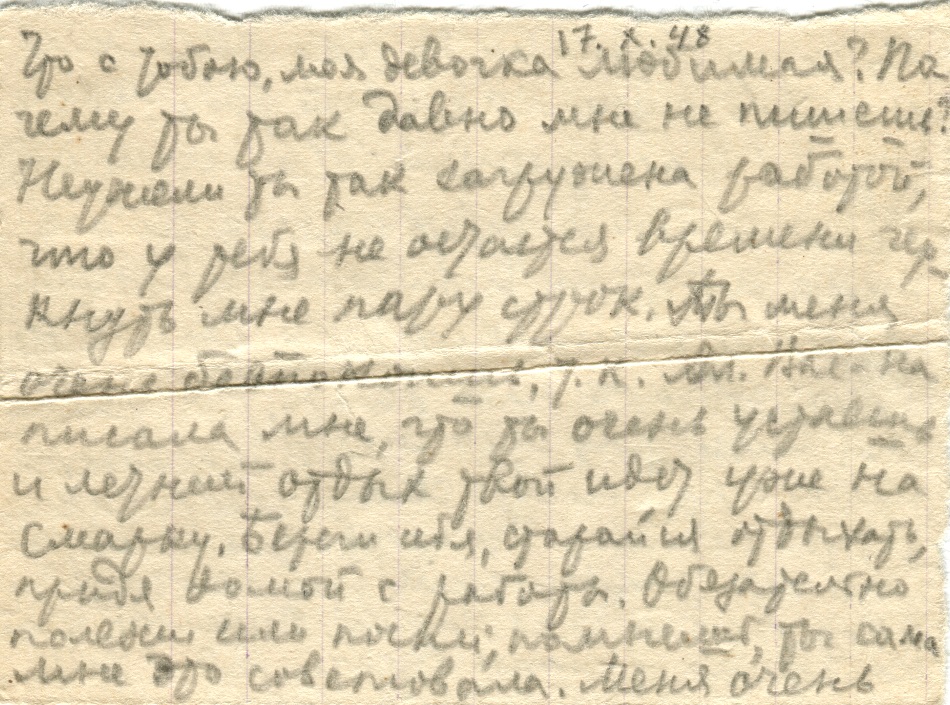 17. X. 48
Что с тобою, моя девочка любимая? По
чему ты так давно мне не пишешь?
Неужели ты так загружена работой,
что у тебя не остается времени чер-
кнуть мне пару строк. Ты меня
очень беспокоишь, т. к.
писала мне, что ты очень устаешь
и летний отдых твой идет уже на
смарку. Береги себя, старайся отдыхать,
придя домой с работы. Обязательно
полежи или поспи, помнишь, ты сама
мне это советовала. Меня очень